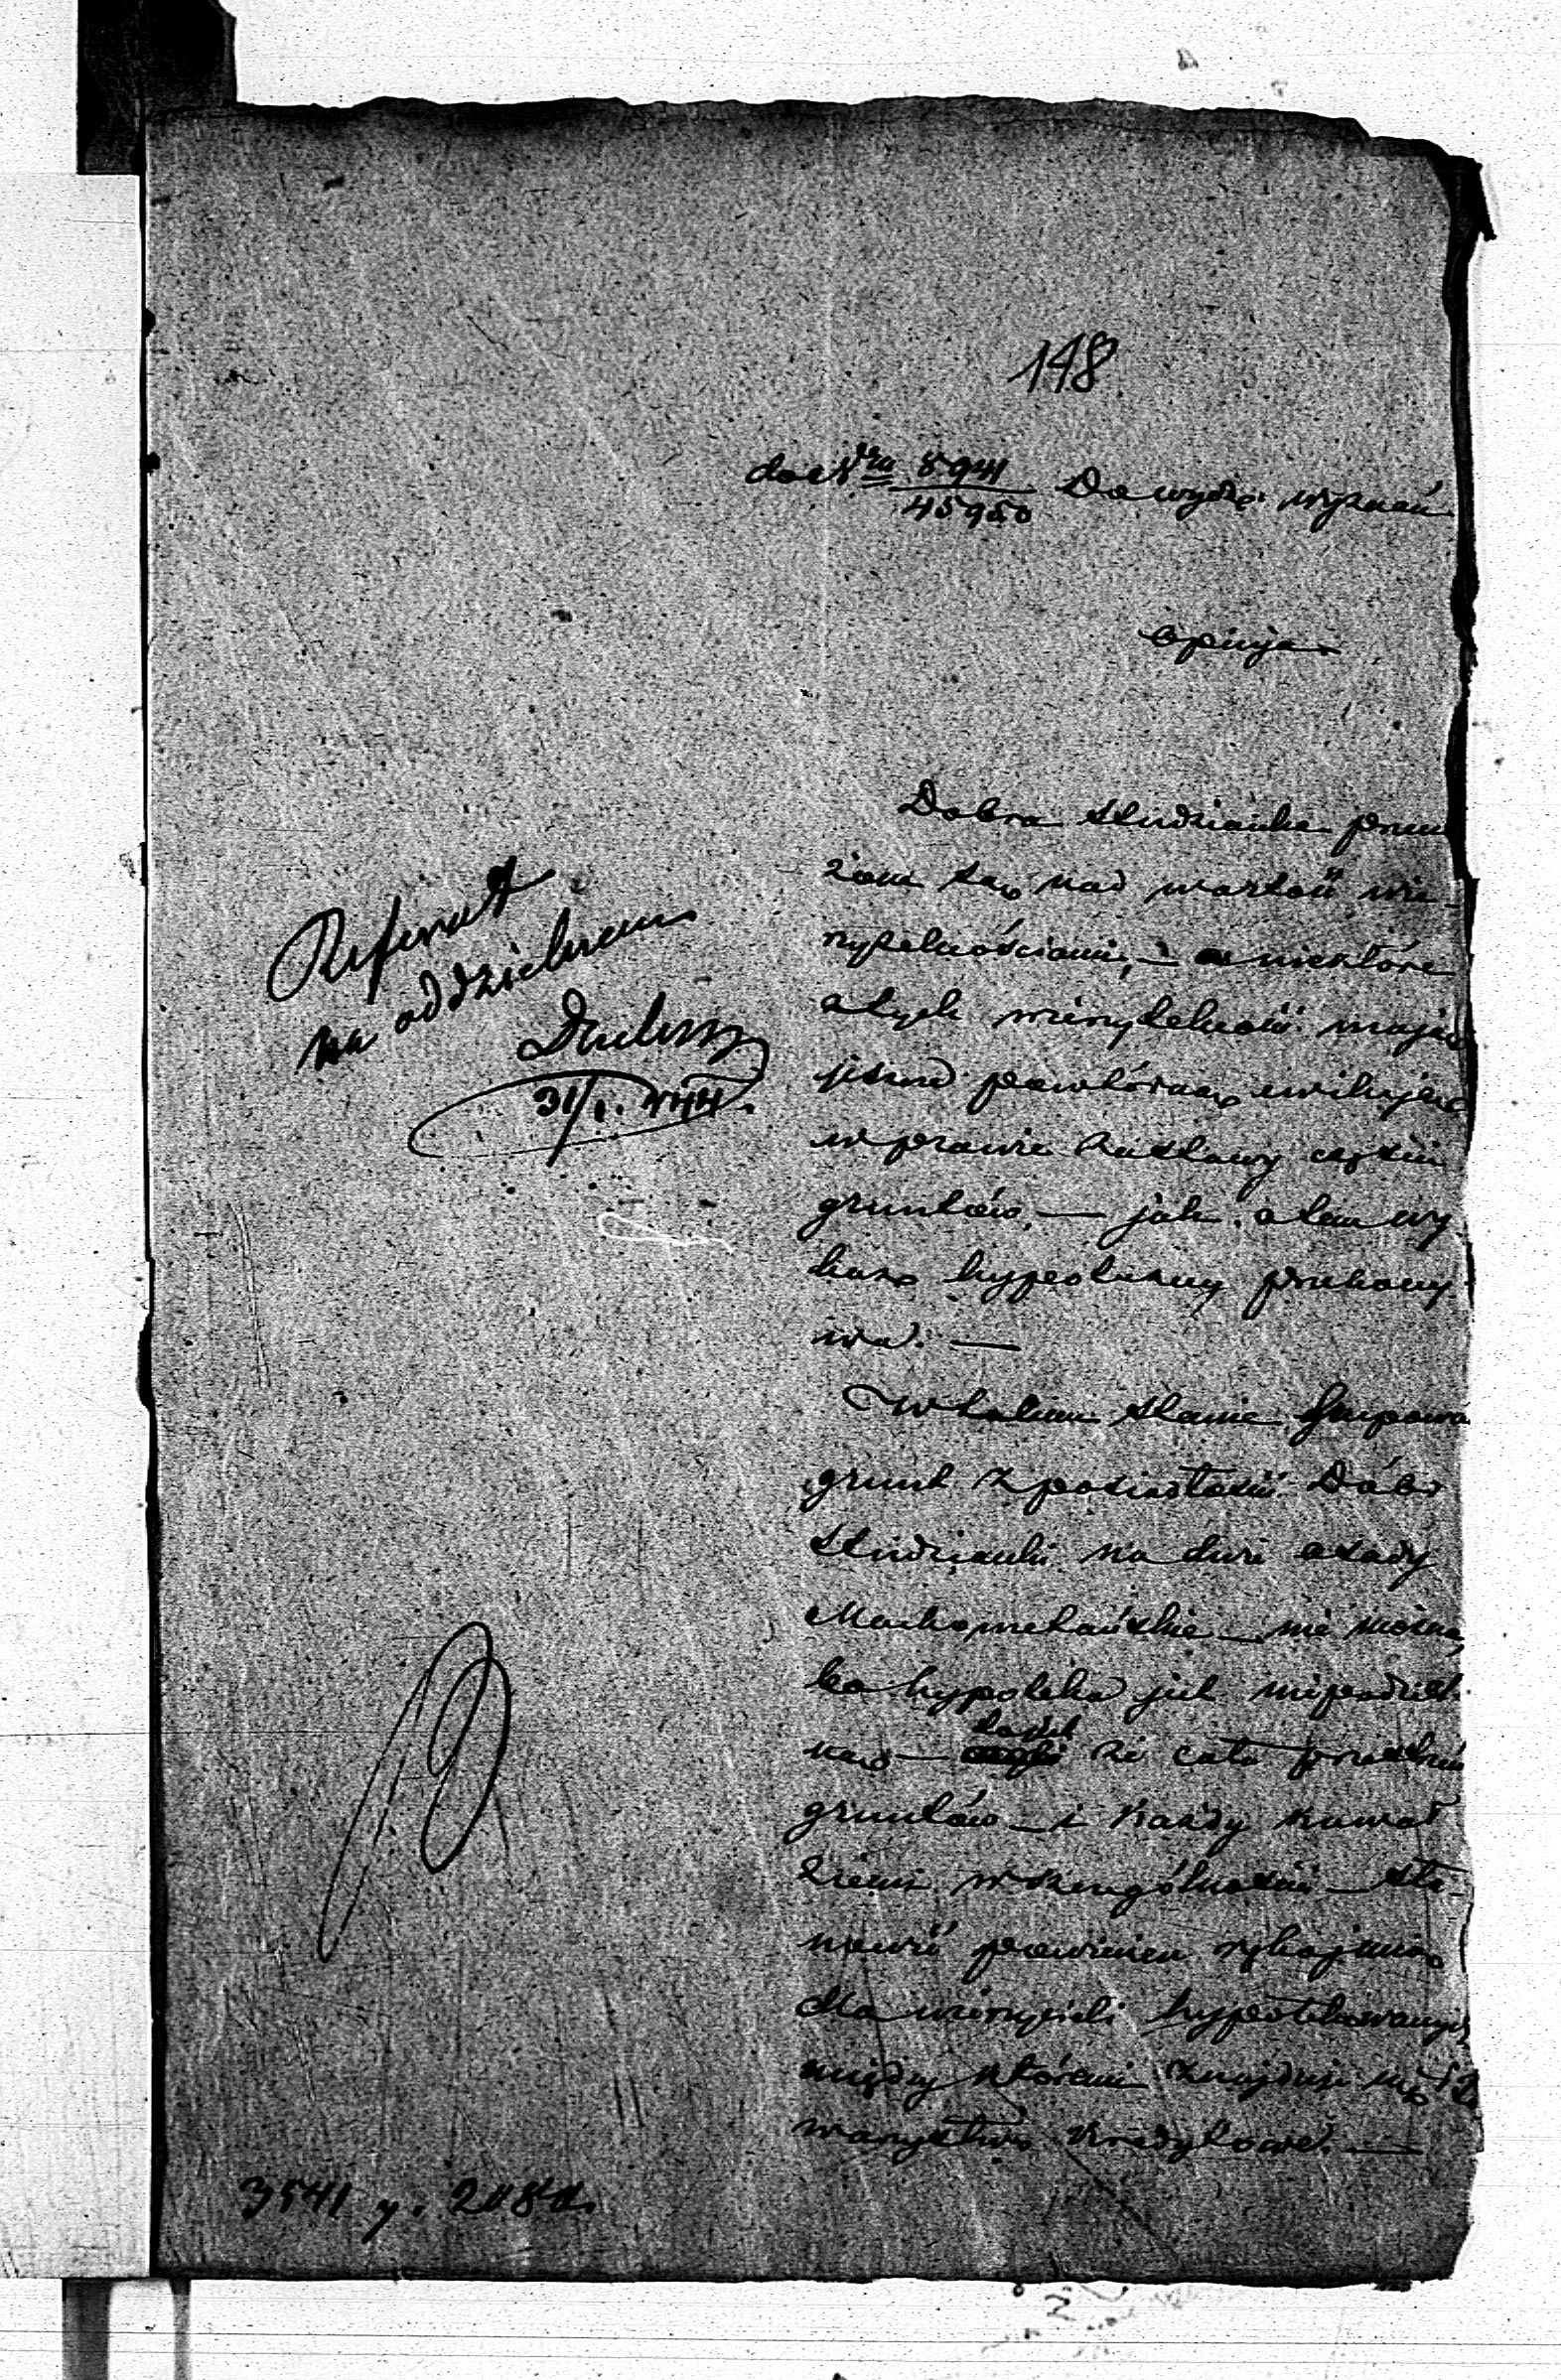 148
do Nru 8941/45950 Do wydz. wyznań
Opinja
Dobra Studzianka prze
żone są nad wartość wie-
rzytelnościami, — a niektóre
z tych wierzytelności mają
jeszcze powtórną ewikcję
w prawie zastawy części
gruntów, — jak o tem wy
kaz hypoteczny przekony
wa. —
W takim stanie
grunt z posiadłości Dóbr
Studzianki na dwie osady
Machometańskie — nie można,
bo hypoteka jest niepodziel-
na — to jest że cała przestrzeń
gruntów — i każdy kawał
ziemi w szczególności — sta-
nowić powinien rękojmią
dla wierzycieli hypotekowanych,
między któremi znajduje się To
warzystwo Kredytowe. —
Referat
na oddzielnem
31/1. 844.
3541 y. 208